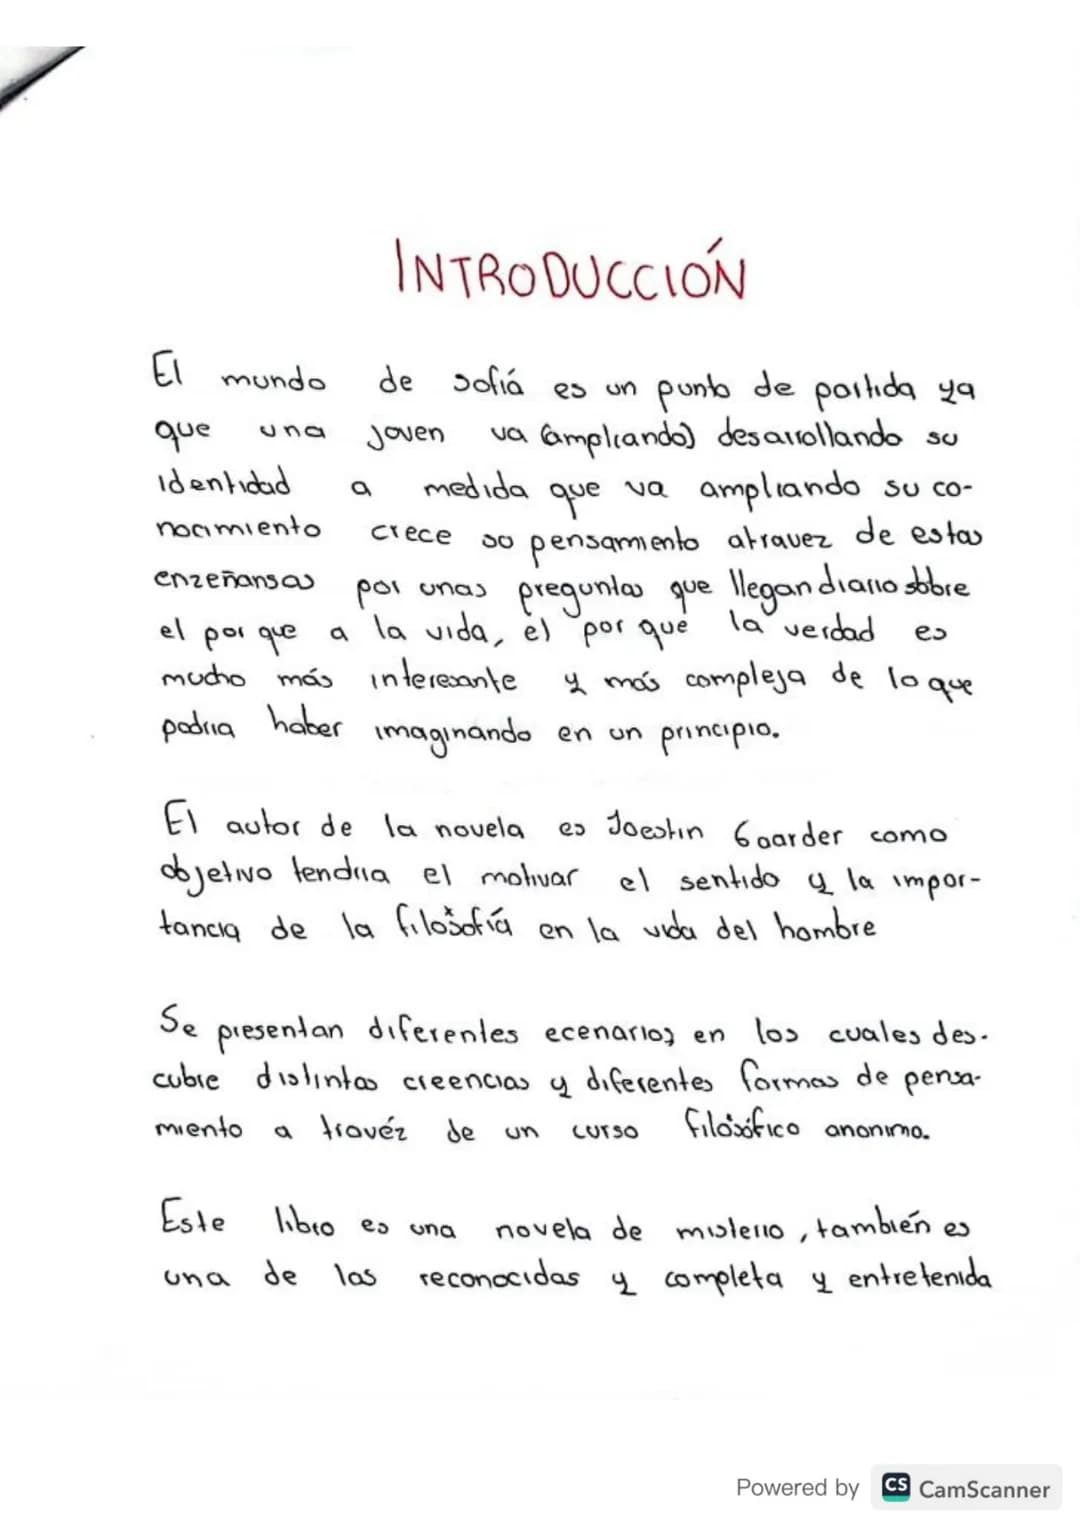 INTRODUCCIÓN
El mundo de sofiá es un punto de partida ya
que una joven va (ampliando) desarrollando su
identidad a medida que va ampliando su co-
nocimiento crece su pensamiento atravez de estas
enzeñansas por unas preguntas que llegan diario sobre
el por que a la vida, el por que la verdad es
mucho más interesante y más compleja de lo que
podria haber imaginando en un principio.
El autor de la novela es Joestin Gaarder como
objetivo tendria el motivar el sentido y la impor-
tancia de la filosofía en la vida del hombre
Se presentan diferentes ecenarios en los cuales des-
cubre distintas creencias y diferentes formas de pensa-
miento a travéz de un curso filosófico anonimo.
Este libro es una novela de misterio, también es
una de las reconocidas y completa y entretenida
Powered by CS CamScanner